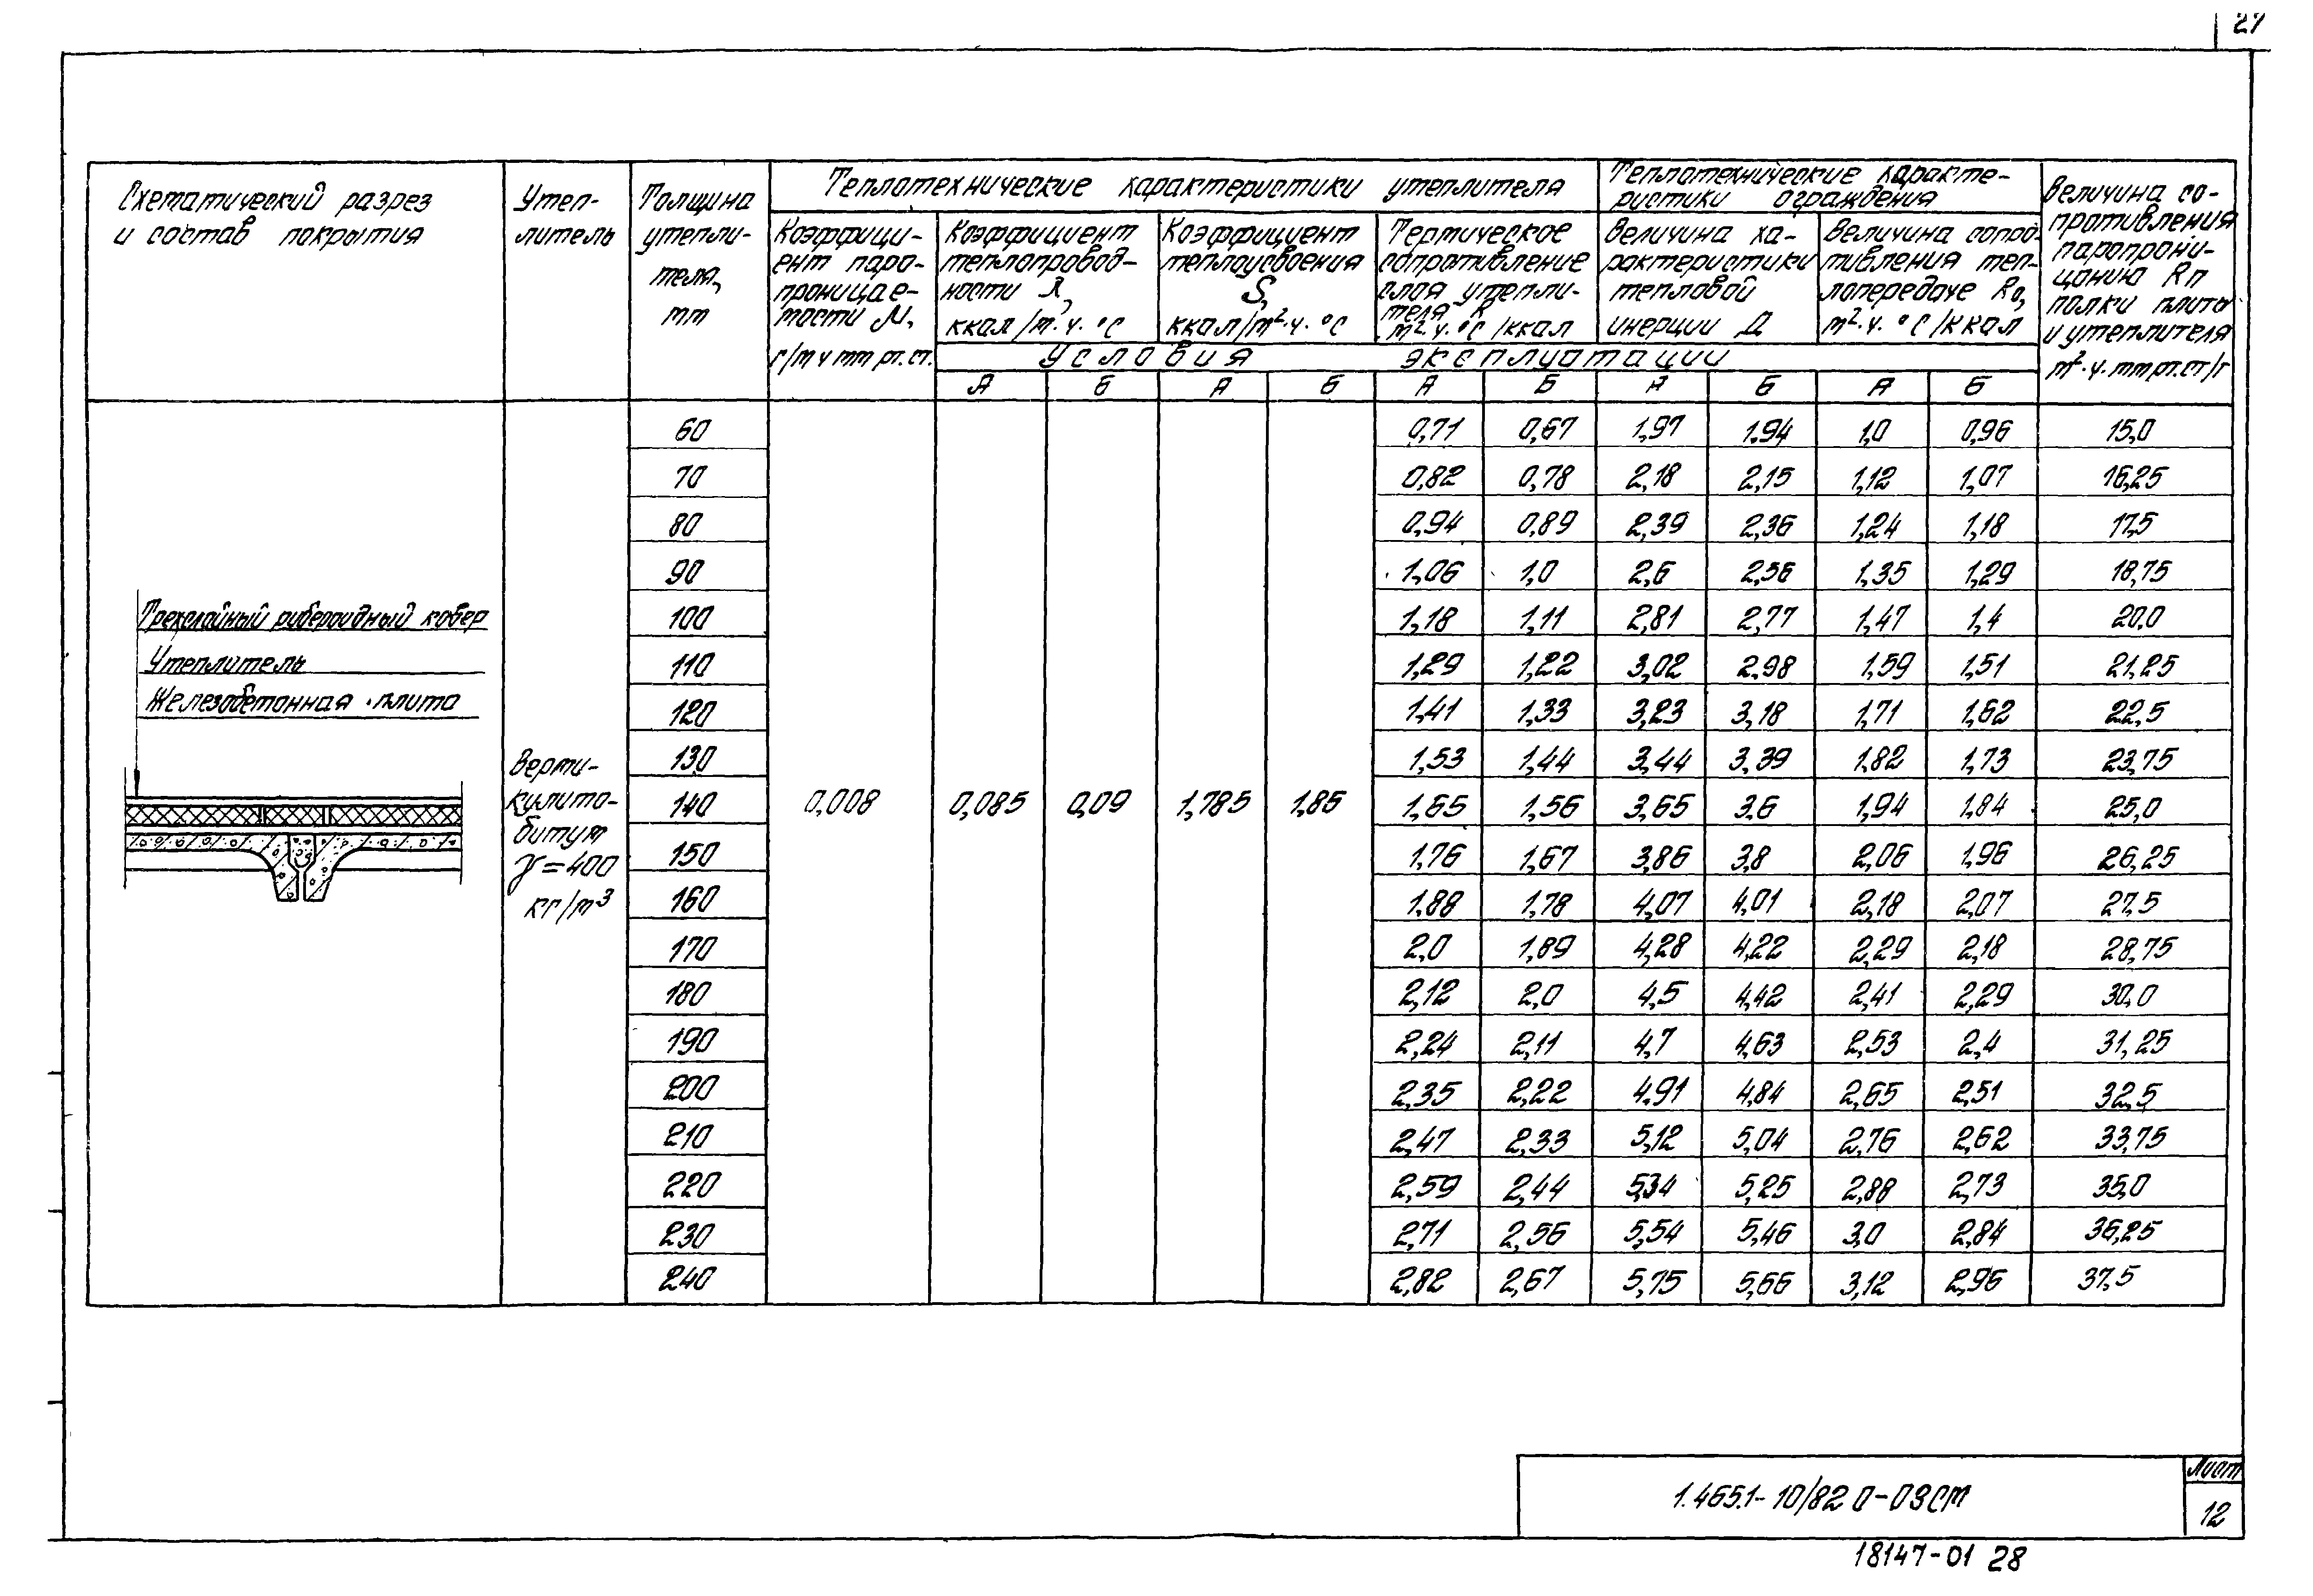 27
Схематический разрез
и состав покрытия
Утеп-
литель
Толщина
утепли-
теля,
мм
Теплотехнические характеристики утеплителя
Коэффици-
ент паро-
проницае-
мости μ,
г/м ч мм рт. ст.
Коэффициент
теплопровод-
ности λ,
ккал/м·ч·°С
Коэффициент
теплоусвоения
S,
ккал/м²·ч·°С
Термическое
сопротивление
слоя утепли-
теля R
м²·ч·°С/ккал
Теплотехнические характе-
ристики ограждения
Величина ха-
рактеристики
тепловой
инерции Д
Величина сопро-
тивления теп-
лопередаче R₀,
м²·ч·°С/ккал
Величина со-
противления
паропрони-
цанию Rп
полки плиты
и утеплителя
м²·ч·мм рт.ст/г
Условия эксплуатации
А Б А Б А Б А Б А Б
60 0,71 0,67 1,97 1.94 1,0 0,96 15,0
70 0,82 0,78 2,18 2,15 1,12 1,07 16,25
80 0,94 0,89 2,39 2,36 1,24 1,18 17,5
90 1,06 1,0 2,6 2,56 1,35 1,29 18,75
100 1,18 1,11 2,81 2,77 1,47 1,4 20,0
110 1,29 1,22 3,02 2,98 1,59 1,51 21,25
120 1,41 1,33 3,23 3,18 1,71 1,62 22,5
130 1,53 1,44 3,44 3,39 1,82 1,73 23,75
140 0,008 0,085 0,09 1,785 1,85 1,65 1,56 3,65 3,6 1,94 1,84 25,0
150 1,76 1,67 3,86 3,8 2,06 1,96 26,25
160 1,88 1,78 4,07 4,01 2,18 2,07 27,5
170 2,0 1,89 4,28 4,22 2,29 2,18 28,75
180 2,12 2,0 4,5 4,42 2,41 2,29 30,0
190 2,24 2,11 4,7 4,63 2,53 2,4 31,25
200 2,35 2,22 4,91 4,84 2,65 2,51 32,5
210 2,47 2,33 5,12 5,04 2,76 2,62 33,75
220 2,59 2,44 5,34 5,25 2,88 2,73 35,0
230 2,71 2,56 5,54 5,46 3,0 2,84 36,25
240 2,82 2,67 5,75 5,66 3,12 2,96 37,5
Трехслойный рубероидный ковер
Утеплитель
Железобетонная плита
Верми-
кулито-
битум
γ=400
кг/м³
1.465.1-10/82 0-03СМ
Лист
12
18147-01 28